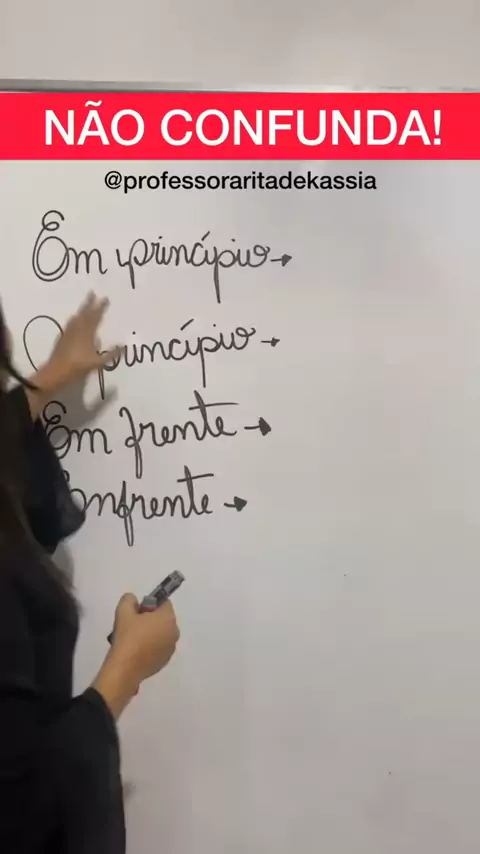 NÃO CONFUNDA!
@professoraritadekassia
Em princípio→
princípio→
Em frente→
Enfrente→